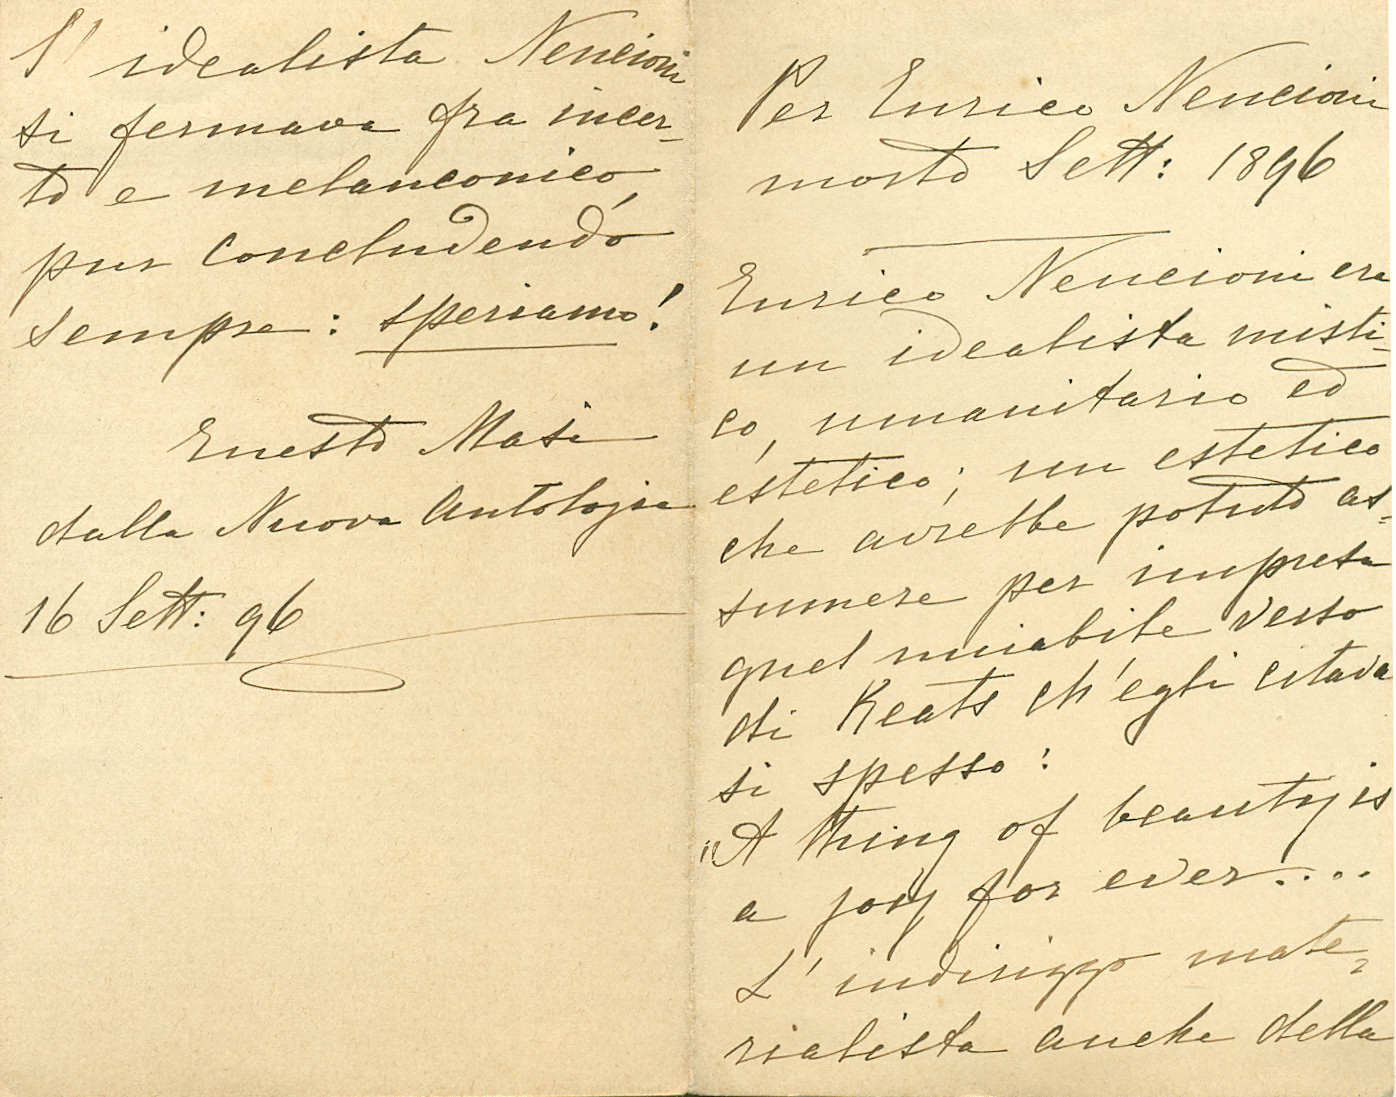 L'idealista Nencioni
si fermava fra incer-
to e melanconico,
pur concludendo
sempre: speriamo!
Ernesto Masi
dalla Nuova Antologia
16 Sett: 96
Per Enrico Nencioni
morto Sett: 1896
Enrico Nencioni era
un idealista misti-
co, umanitario ed
estetico; un estetico
che avrebbe potuto as-
sumere per impresa
quel mirabile verso
di Keats ch'egli citava
si spesso:
"A thing of beauty is
a joy for ever....
L'indirizzo mate-
rialista anche della